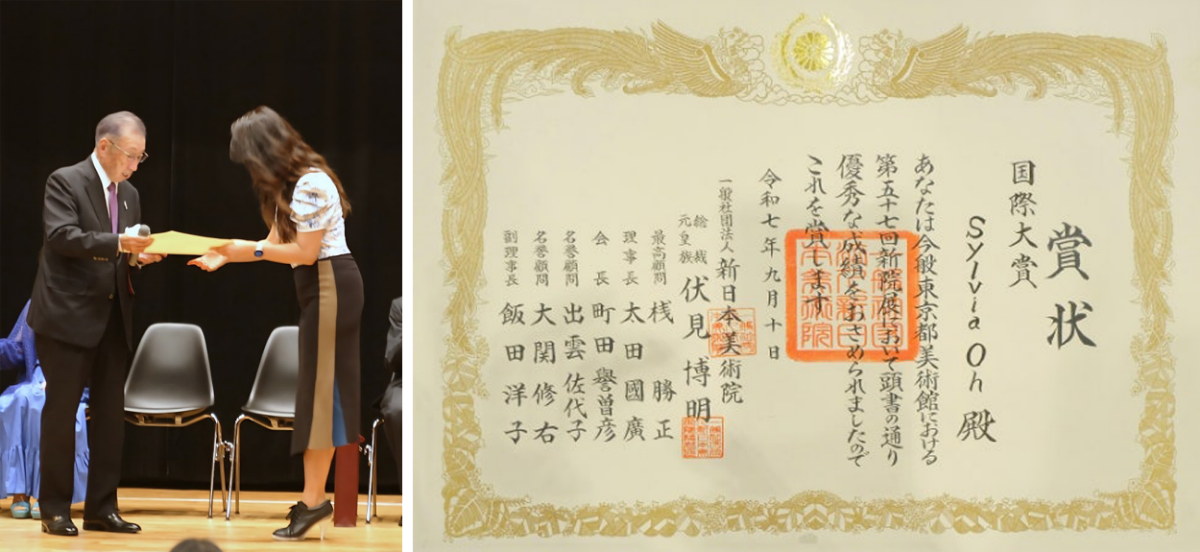 賞状
国際大賞
Sylvia Oh 殿
あなたは今般東京都美術館における
第五十七回新院展において頭書の通り
優秀な成績をおさめられましたので
これを賞します
令和七年九月十日
一般社団法人 新日本美術院
総裁
元皇族 伏見博明
最高顧問 桟勝正
理事長 太田國廣
会長 町田譽曽彦
名誉顧問 出雲佐代子
名誉顧問 大関修右
副理事長 飯田洋子